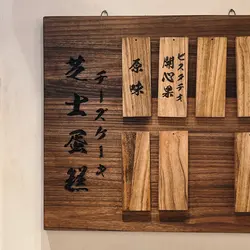 芝士蛋糕
チーズケーキ
原味
ピスタチオ
開心果